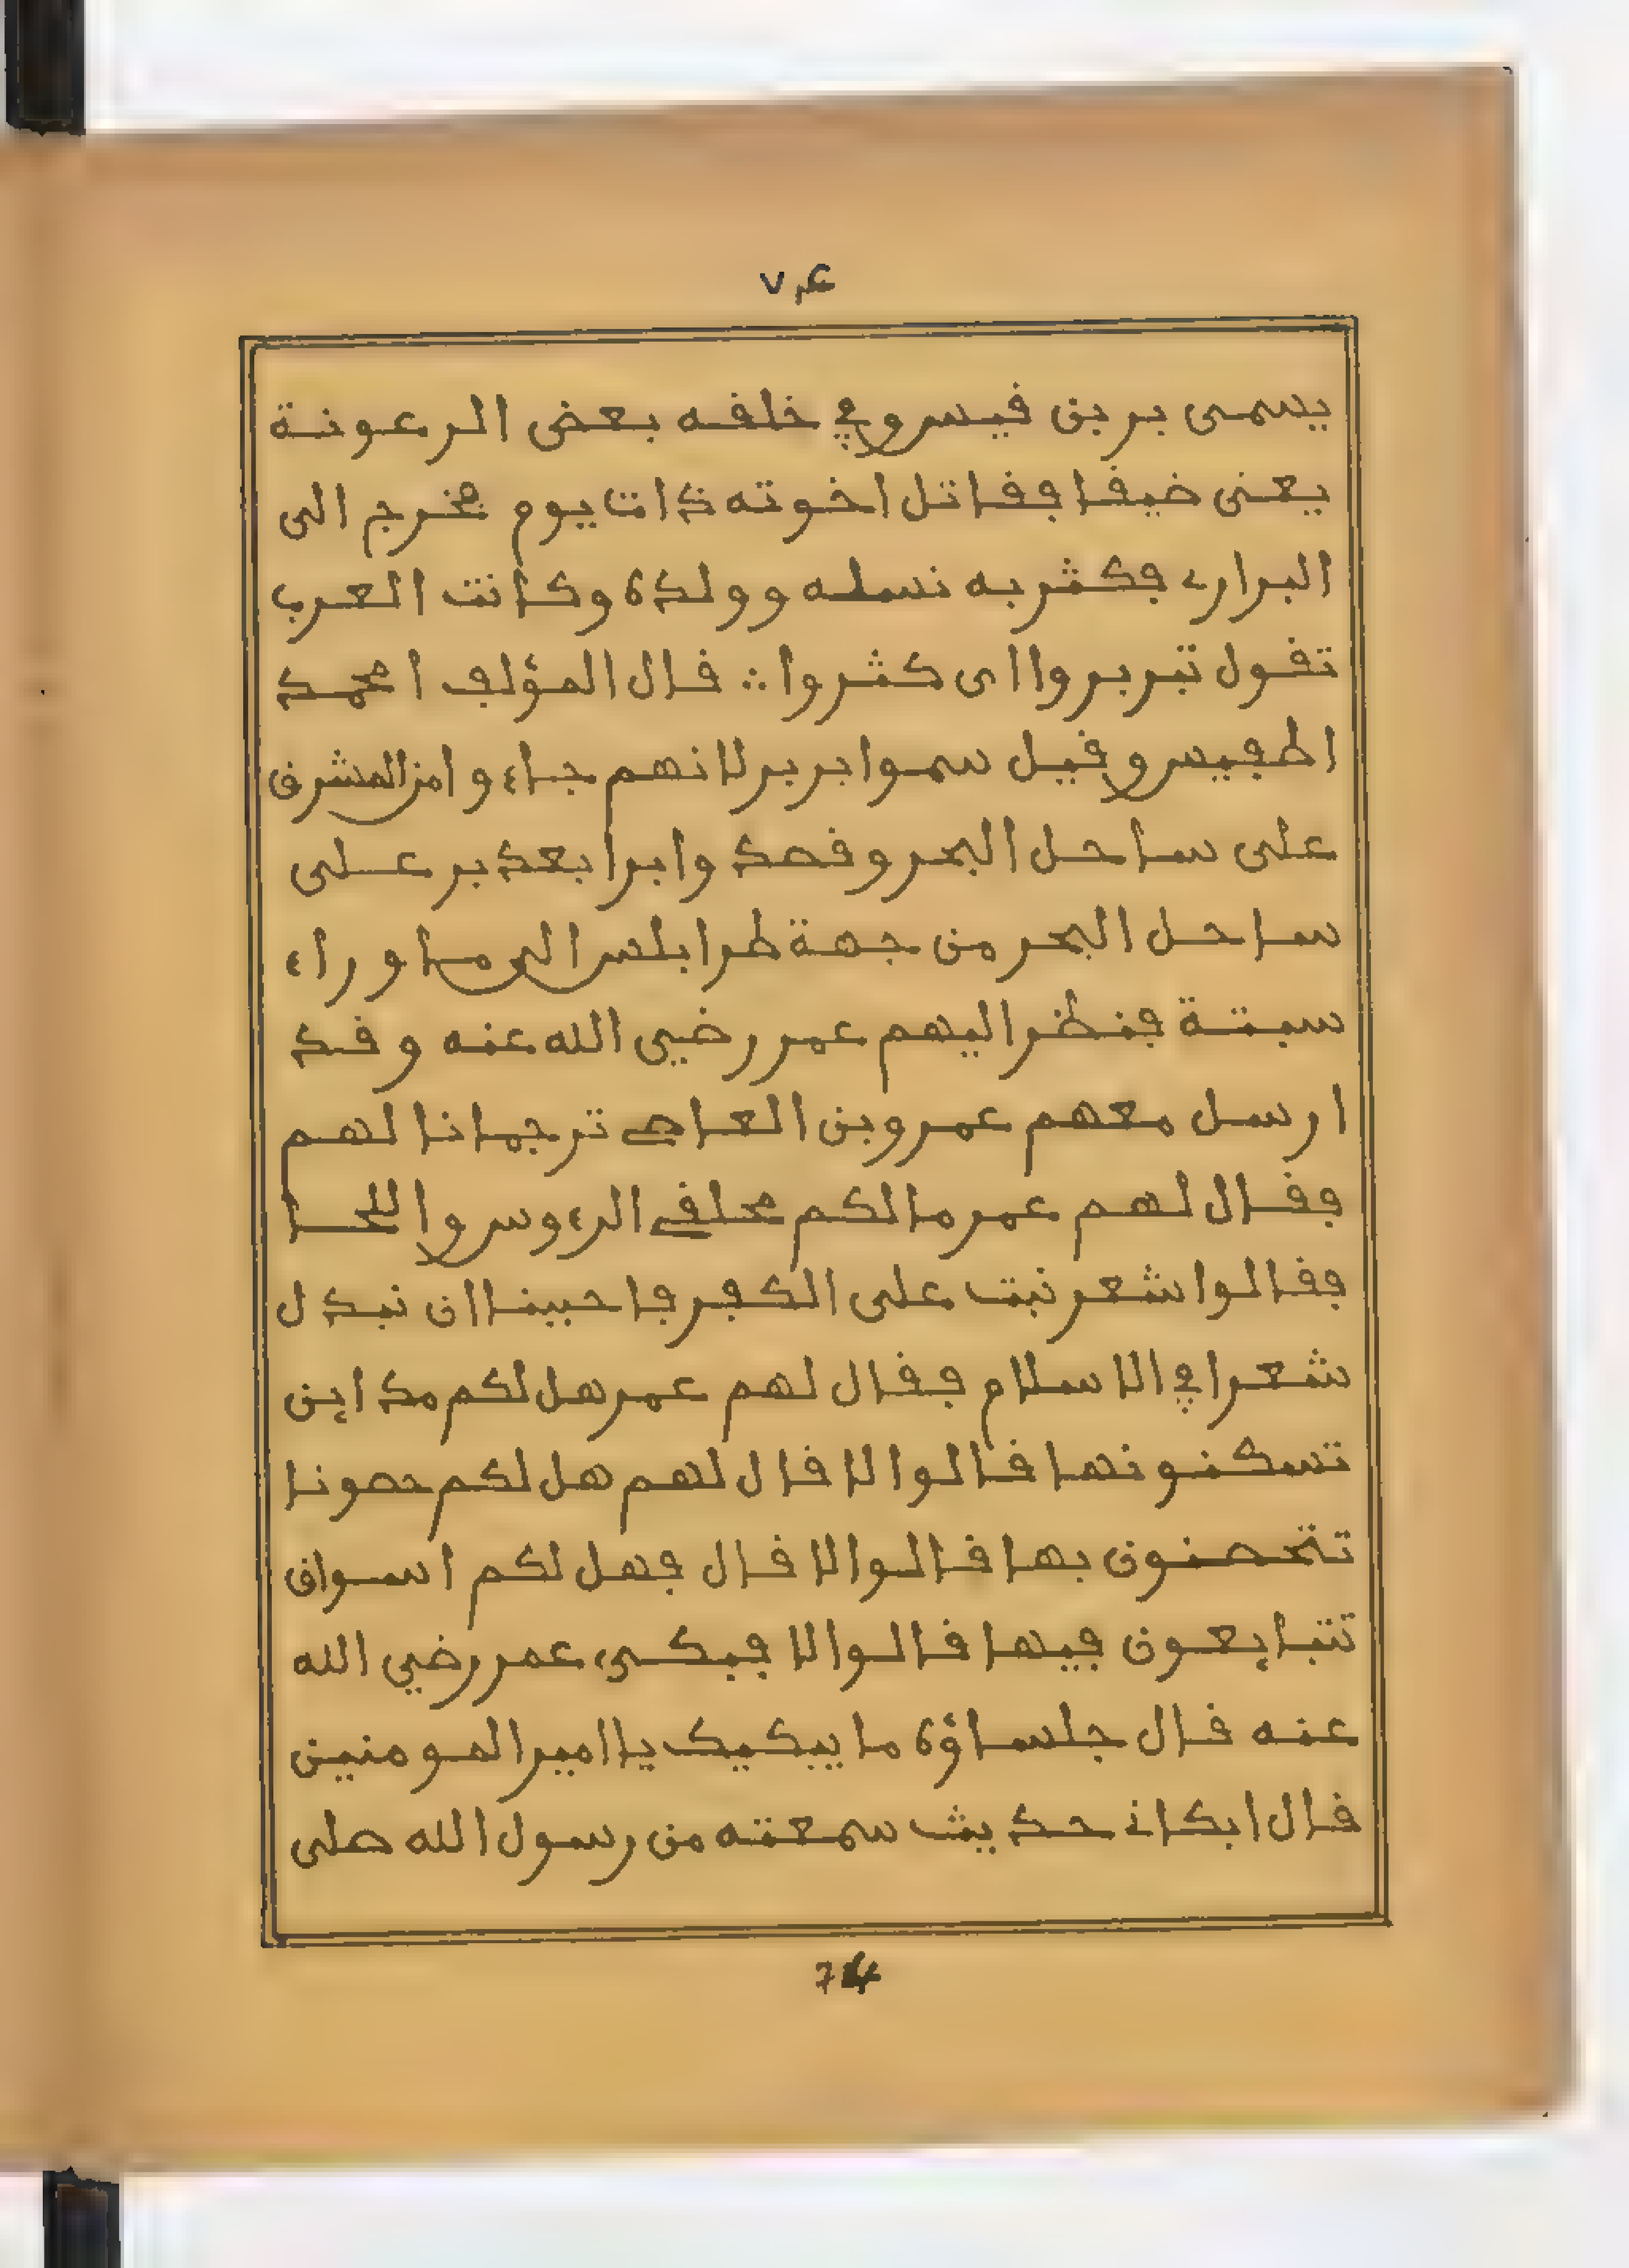 ٧٤
يسمى بربن قيس وفي خلفه بعض الرعونة
يعنى ضيفا فقاتل اخوته ذات يوم فخرج الى
البرارى فكثر به نسله وولده وكانت العرب
تقول تبربروا اى كثروا ∴ قال المؤلف امحمد
اطفيس وقيل سموا بربر لانهم جاءوا من المشرق
على ساحل البحر وقصدوا برا بعد بر على
ساحل البحر من جهة طرابلس الى ما وراء
سبتة فنظر اليهم عمر رضي الله عنه وقد
ارسل معهم عمرو بن العاص ترجمانا لهم
فقال لهم عمر مالكم محلقى الرءوس واللحا
فقالوا شعر نبت على الكفر فاحببنا ان نبدل
شعرا في الاسلام فقال لهم عمر هل لكم مداين
تسكنونها قالوا لا قال لهم هل لكم حصونا
تتحصنون بها قالوا لا قال فهل لكم اسواق
تتبايعون فيها قالوا لا فبكى عمر رضي الله
عنه قال جلساؤه ما يبكيك يا امير المومنين
قال ابكانى حديث سمعته من رسول الله صلى
74